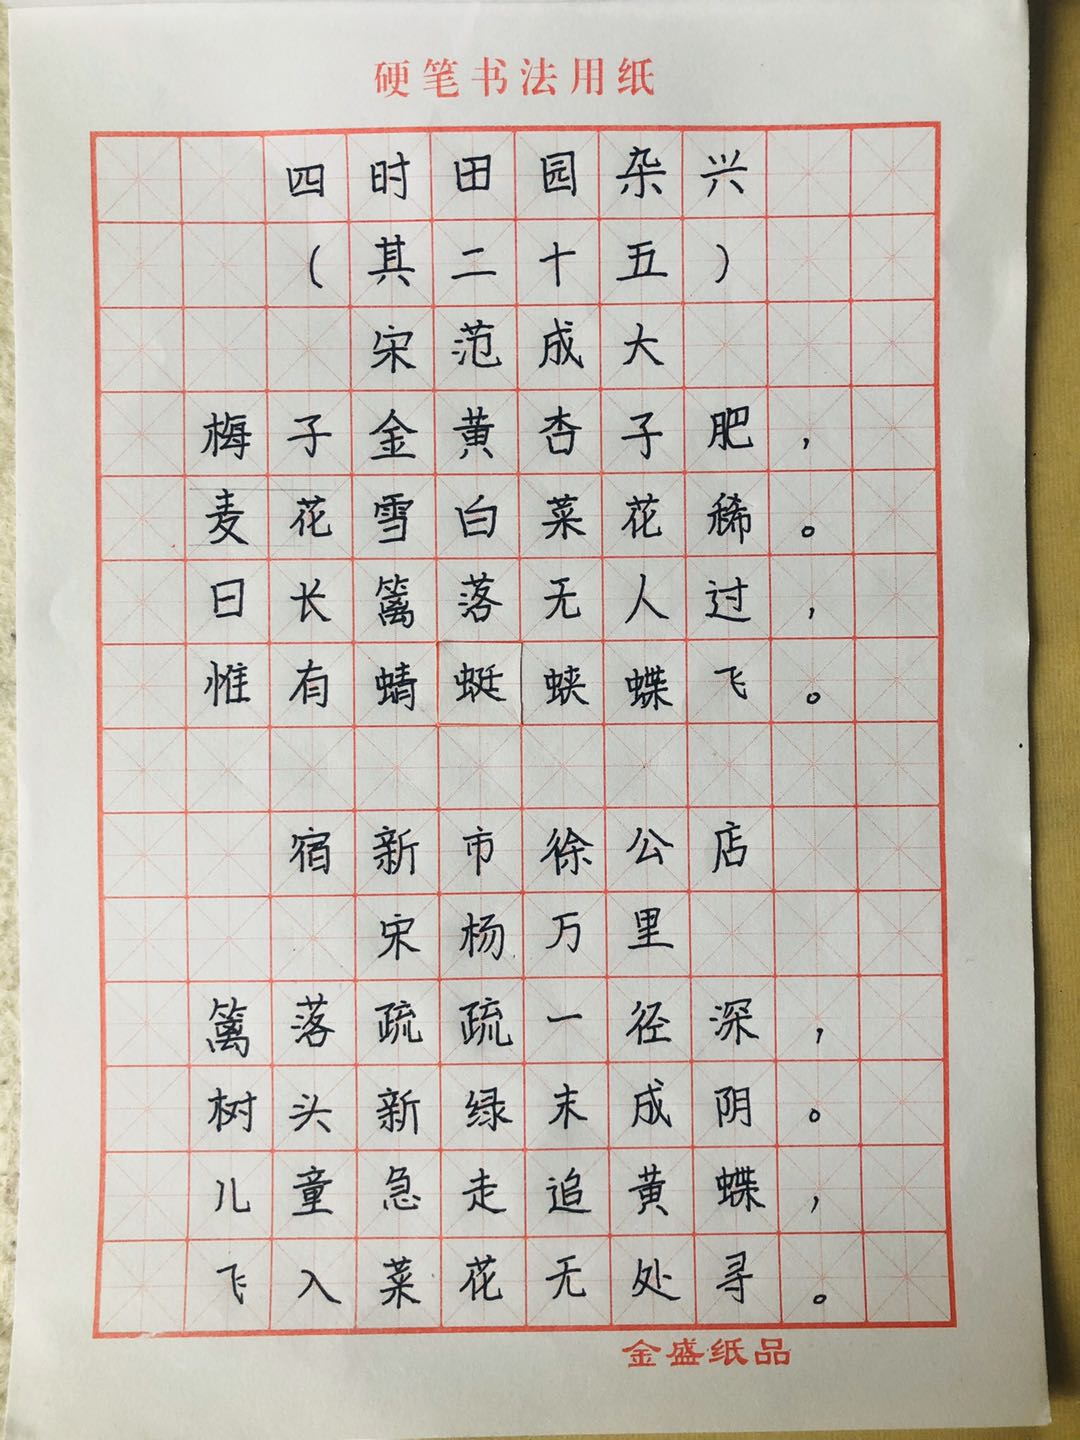 硬笔书法用纸
四时田园杂兴
（其二十五）
宋范成大
梅子金黄杏子肥，
麦花雪白菜花稀。
日长篱落无人过，
惟有蜻蜓蛱蝶飞。
宿新市徐公店
宋杨万里
篱落疏疏一径深，
树头新绿未成阴。
儿童急走追黄蝶，
飞入菜花无处寻。
金盛纸品